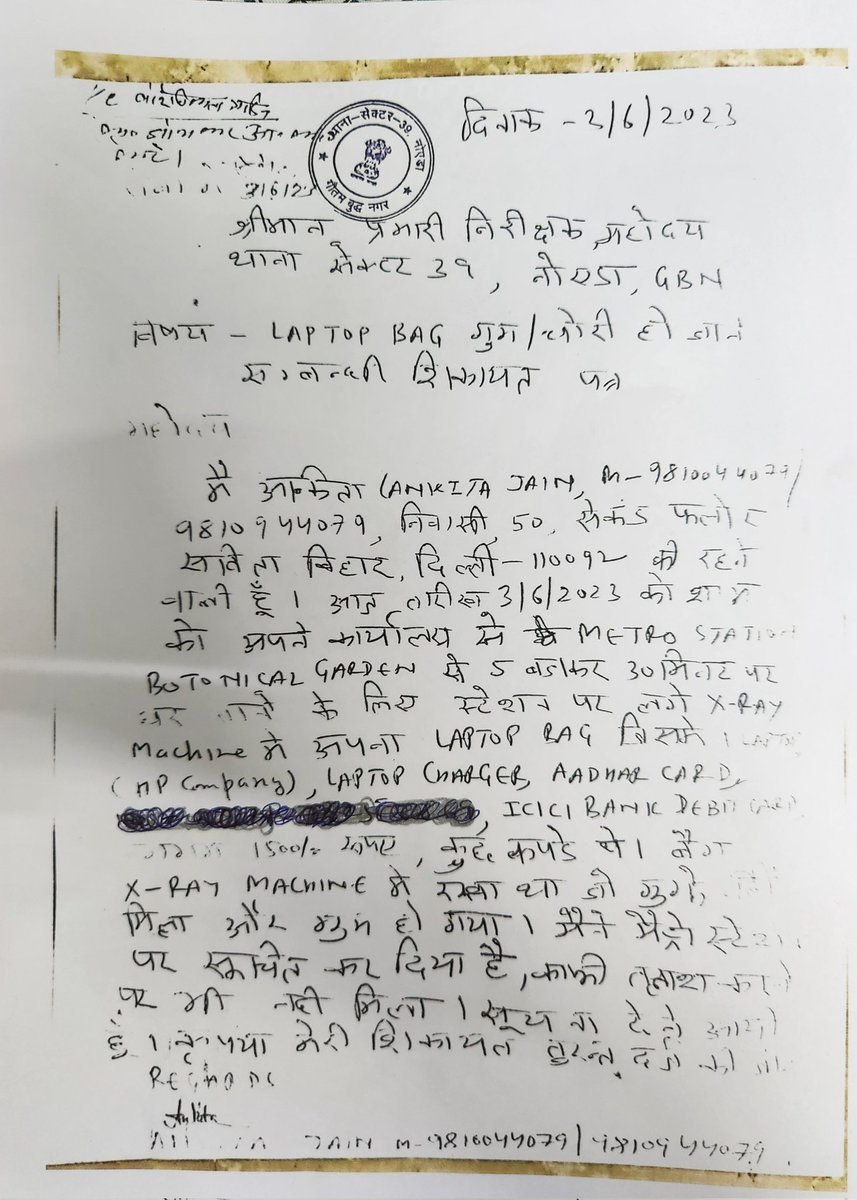 दिनाक - 3/6/2023
थाना-सेक्टर-39, नोएडा
गौतम बुद्ध नगर
3/6/23
श्रीमान प्रभारी निरीक्षक महोदय
थाना सेक्टर 39, नोएडा, GBN
विषय - LAPTOP BAG गुम/चोरी हो जाने
सम्बन्धी शिकायत पत्र
महोदय
मै अंकिता (ANKITA JAIN, M-9810044079/
9810944079, निवासी, 50, सेकंड फ्लोर
सविता विहार, दिल्ली-110092 की रहने
वाली हूँ। आज तारीख 3/6/2023 को शाम
को अपने कार्यालय से METRO STATION
BOTONICAL GARDEN से 5 बजकर 30 मिनट पर
घर जाने के लिए स्टेशन पर लगे X-RAY
Machine मे अपना LAPTOP BAG जिसमे 1 LAPTOP
(HP Company), LAPTOP CHARGER, AADHAR CARD,
, ICICI BANK DEBIT CARD
1500/- रूपए, कुछ कपडे थे। बैग
X-RAY MACHINE मे रखा था जो मुझे
मिला और गुम हो गया। मैने मैट्रो स्टेशन
पर सूचित कर दिया है, काफी तलाश करने
पर भी नही मिला। सूचना देने आयी
हूँ। कृपया मेरी शिकायत तुरन्त दर्ज की जा
REGARDS
Ankita
ANKITA JAIN M-9810044079/9810944079